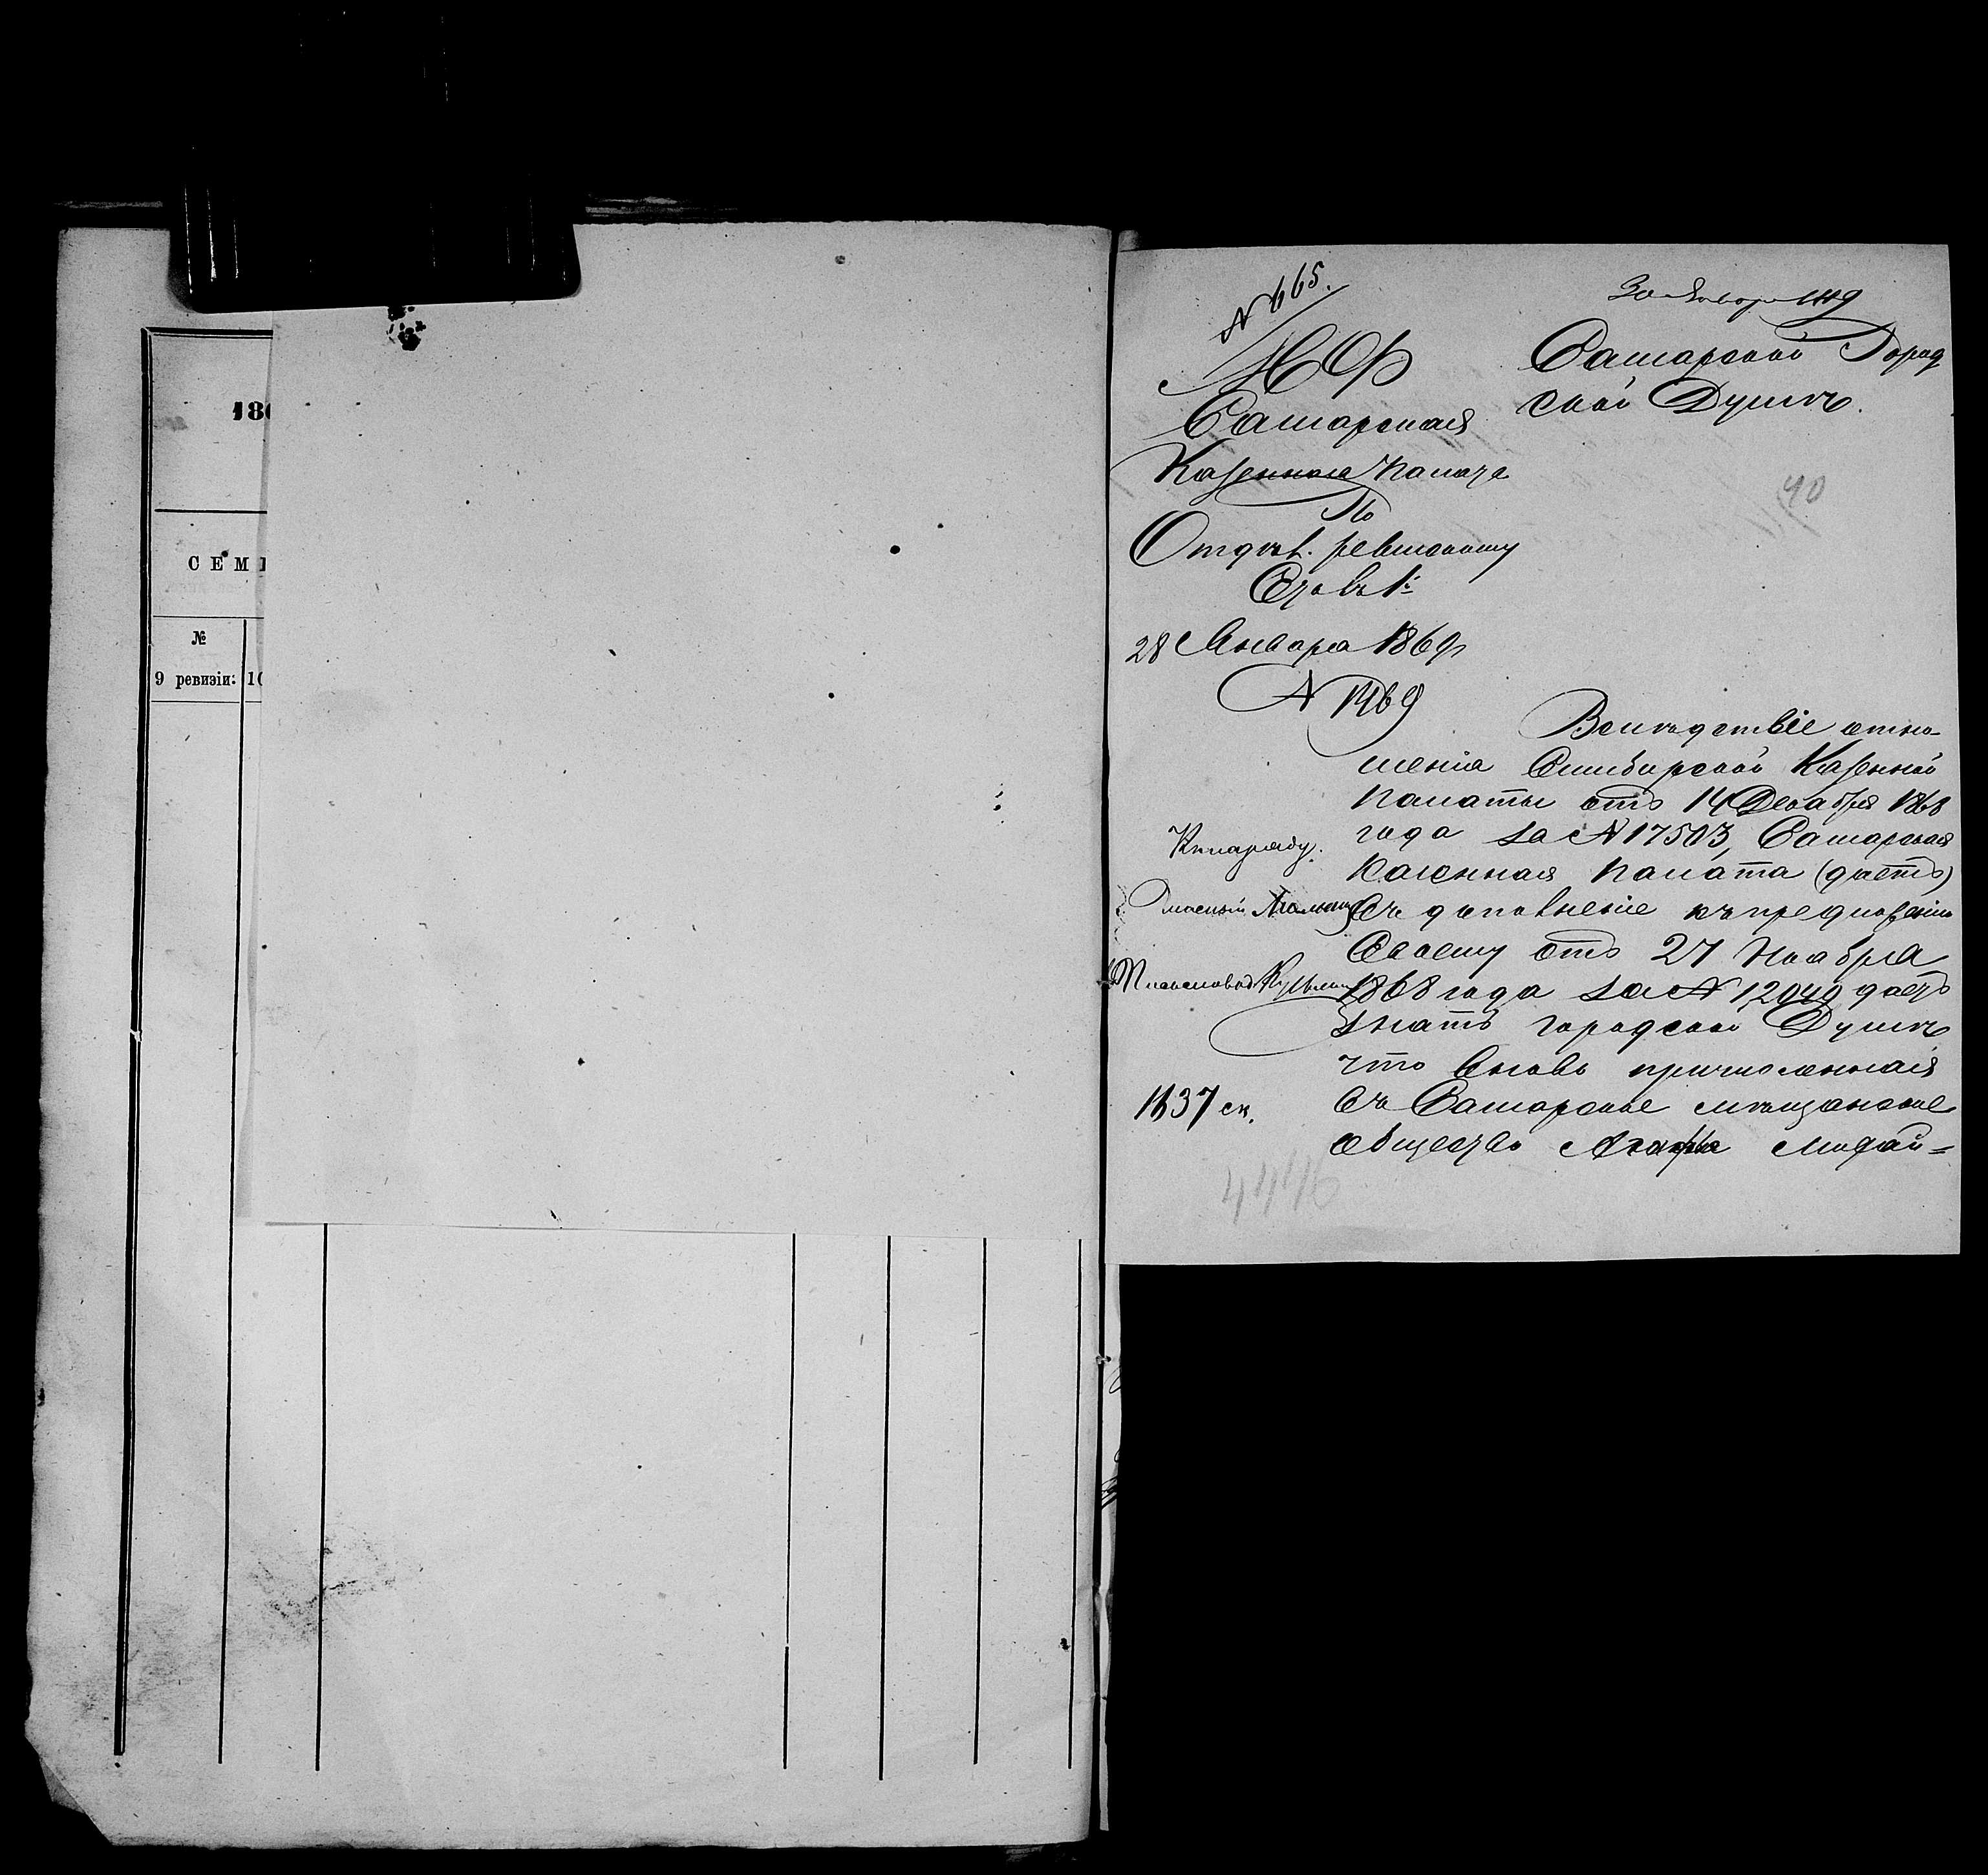 186
СЕМ
№
9 ревизіи: 10
№ 665.
30 Января 1869
МФ
Самарская
Казенная Палата
По
Отдѣл. ревизскому
Столъ 1й
28 Января 1869
№ 1469
Самарской Город
ской Думѣ.
40
Вслѣдствіе отно-
шенія Симбирской Казенной
палаты отъ 14 Декабря 1868
года за № 17503, Самарская
Казенная палата (даетъ)
въ дополненіе къ предложенію
своему отъ 27 Ноября
1868 года за № 12040 даетъ
знать городской Думѣ
что вновь причисленная
въ Самарское мѣщанское
общество Агафья Михай=
Къ наряду.
Гласный
1837 ск.
4446